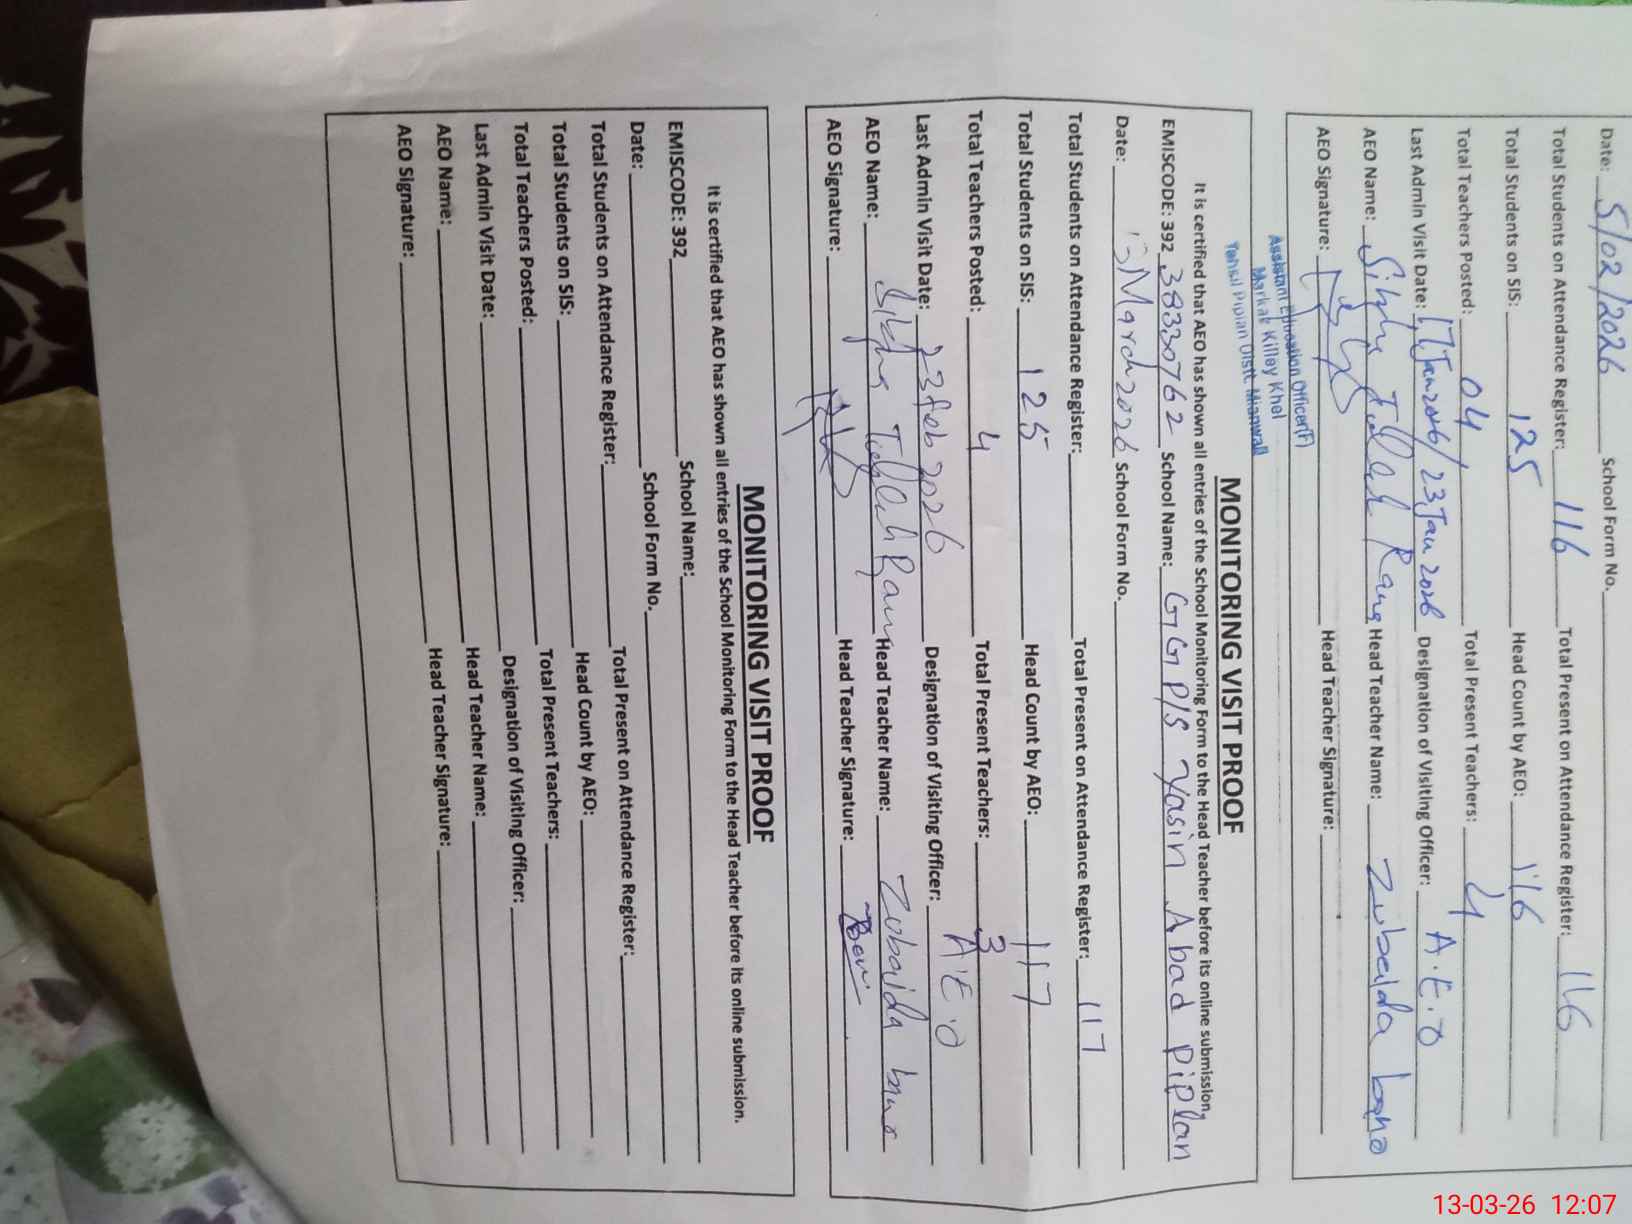 Date: 5/02/2026 School Form No.
Total Students on Attendance Register: 116 Total Present on Attendance Register: 116
Total Students on SIS: 125 Head Count by AEO: 116
Total Teachers Posted: 04 Total Present Teachers: 4
Last Admin Visit Date: 17 Jan 2026/23 Jan 2026 Designation of Visiting Officer: A.E.O
AEO Name: Head Teacher Name: Zubaida bano
AEO Signature: Head Teacher Signature:
Assistant Education Officer(F)
Markaz Killay Khel
Tehsil Piplan Distt. Mianwali
MONITORING VISIT PROOF
It is certified that AEO has shown all entries of the School Monitoring Form to the Head Teacher before its online submission.
EMISCODE: 392 38330762 School Name: GGP/S Yasin Abad piplan
Date: March 2026 School Form No.
Total Students on Attendance Register: Total Present on Attendance Register: 117
Total Students on SIS: 125 Head Count by AEO: 117
Total Teachers Posted: 4 Total Present Teachers: 3
Last Admin Visit Date: 23 feb 2026 Designation of Visiting Officer: A.E.O
AEO Name: Head Teacher Name: Zubaida bano
AEO Signature: Head Teacher Signature:
MONITORING VISIT PROOF
It is certified that AEO has shown all entries of the School Monitoring Form to the Head Teacher before its online submission.
EMISCODE: 392 School Name:
Date: School Form No.
Total Students on Attendance Register: Total Present on Attendance Register:
Total Students on SIS: Head Count by AEO:
Total Teachers Posted: Total Present Teachers:
Last Admin Visit Date: Designation of Visiting Officer:
AEO Name: Head Teacher Name:
AEO Signature: Head Teacher Signature:
13-03-26 12:07